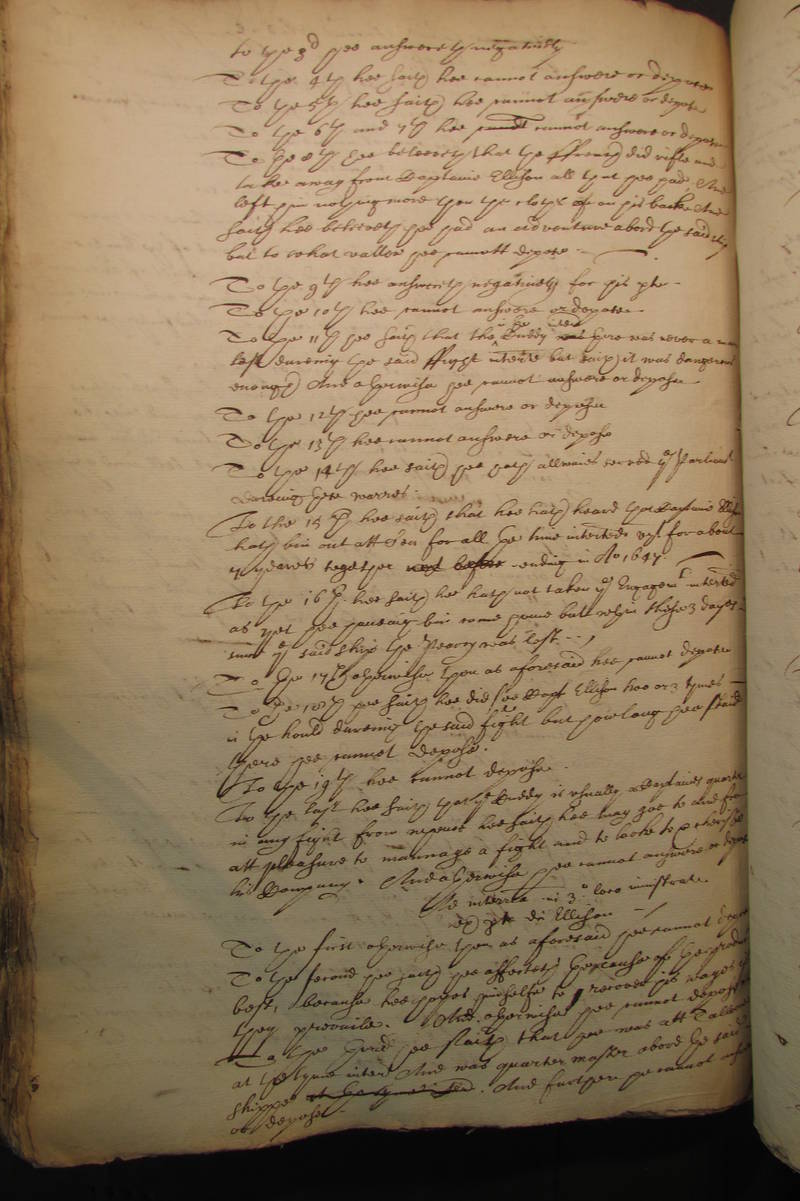 to the 3d hee answereth negatively
To the 4th hee saith hee cannot answere or depose
To the 5th hee saith hee cannot answere or depose
To the 6th and 7th hee cannot answere or depose
To the 8th hee beleeveth that the ffrench did rifle and
take away from Captaine Ellison all that hee had, And
left him nothing more then the clothes on his backe And
saith hee beleeveth hee had an adventure abord the said ship
but to what vallue hee cannott depose.
To the 9th hee answereth negatively for his pte.
To the 10th hee cannot answere or depose.
To the 11th hee saith that the Cuddy there was never a man
lost dureing the said ffight interrte but saith it was dangerous
enough And otherwise hee cannot answere or depose.
To the 12th hee cannot answere or depose
To the 13th hee cannot answere or depose
To the 14th hee saith hee hath allwaies served ye Parliamt
dureing these warres.
To the 15th hee saith that hee hath heard that Captaine Ellison
hath bin out att Sea for all the time interrted vizt for about
7 yeares together next before ending in Ao 1647.
To the 16th hee saith he hath not taken ye Engagemt interrted
as yet hee haveing bin come home but within these 3 dayes
since ye said ship the Pearcy was lost.
To the 17th otherwise then as aforesaid hee cannot depose
To the 18th hee saith hee did see Capt Ellison two or 3 tymes
in the hould dureing the said fight but how long hee staid
there hee cannot depose.
To the 19th hee cannot depose.
To the last hee saith that ye Cuddy is usually a Captaines quarter
in any fight from whence hee saith hee may goe to and fro
att pleasure to mannage a fight and to looke to & cherish
his Company. And otherwise hee cannot answere or depose
Ad interrria in 3o loco ministrata
ex pte dci Ellison
To the first otherwise then as aforesaid hee cannot depose
To the second hee saith hee affecteth the cause of the producent
best, because hee hopes himselfe to recover his wages if
they prevaile. And otherwise hee cannot depose
To the third hee saith that hee was att
at the tyme interrt And was quarter master abord the said
shippe at the tyme interrted. And further he cannot answere
or depose.